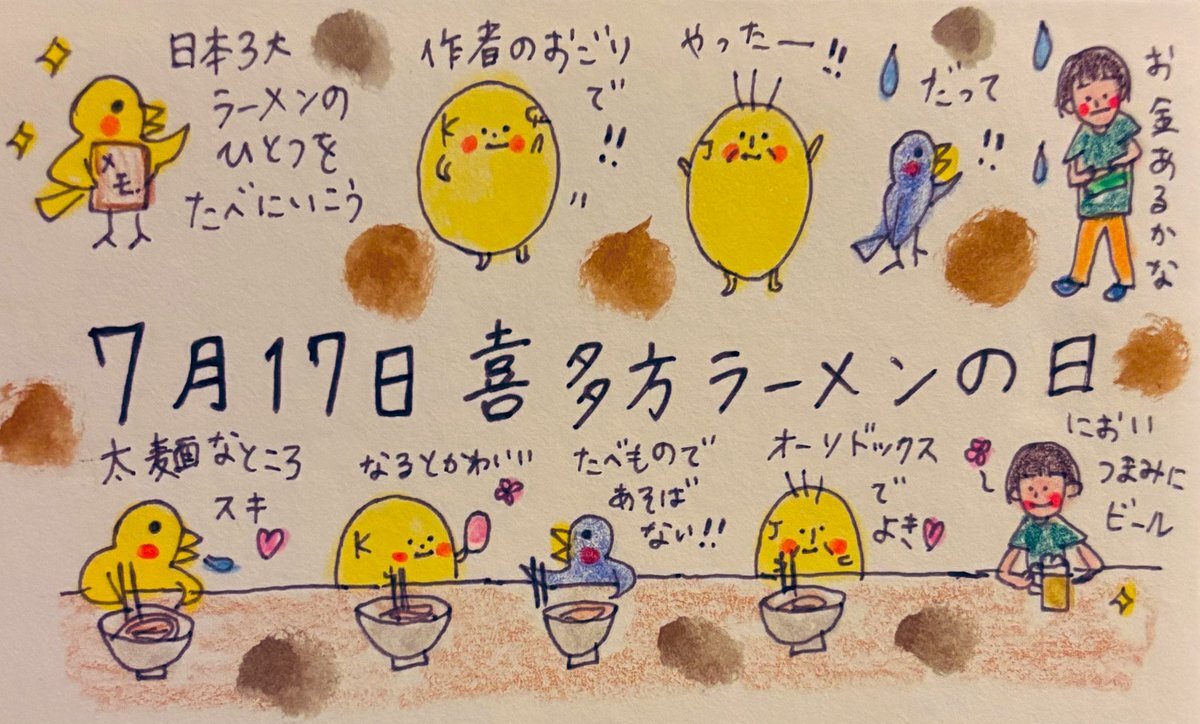 日本3大
ラーメンの
ひとつを
たべにいこう
メモ.
作者のおごり
で!!
K
やったー!!
J
だって
!!
お金あるかな
7月17日 喜多方ラーメンの日
太麺なところ
スキ
なるとかわいい
K
たべもので
あそば
ない!!
オーソドックス
で
よき
J
におい
つまみに
ビール